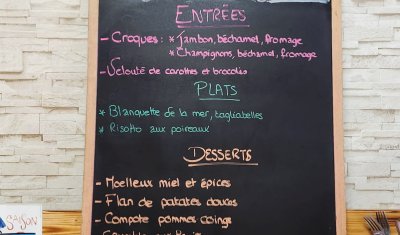 ENTRÉES
- Croques : * Jambon, béchamel, fromage
* Champignons, béchamel, fromage
- Velouté de carottes et brocolis
PLATS
* Blanquette de la mer, tagliatelles
* Risotto aux poireaux
DESSERTS
- Moelleux miel et épices
- Flan de patates douces
- Compote pommes coings
SAISON